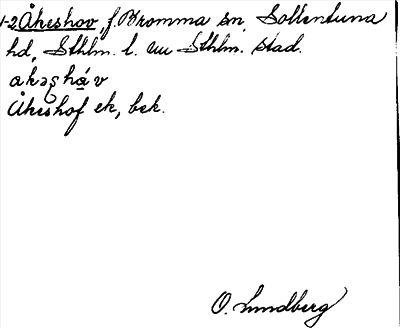 1-2 Åkeshov, f. Bromma sn, Sollentuna
hd, Sthlm. l. nu Sthlm. stad.
Åkeshof ek, bek.
O. Lundberg